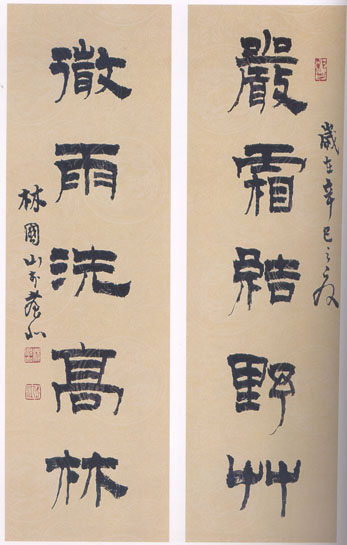 歲在辛巳之夏
嚴霜結野艸
微雨洗髙林
林國山